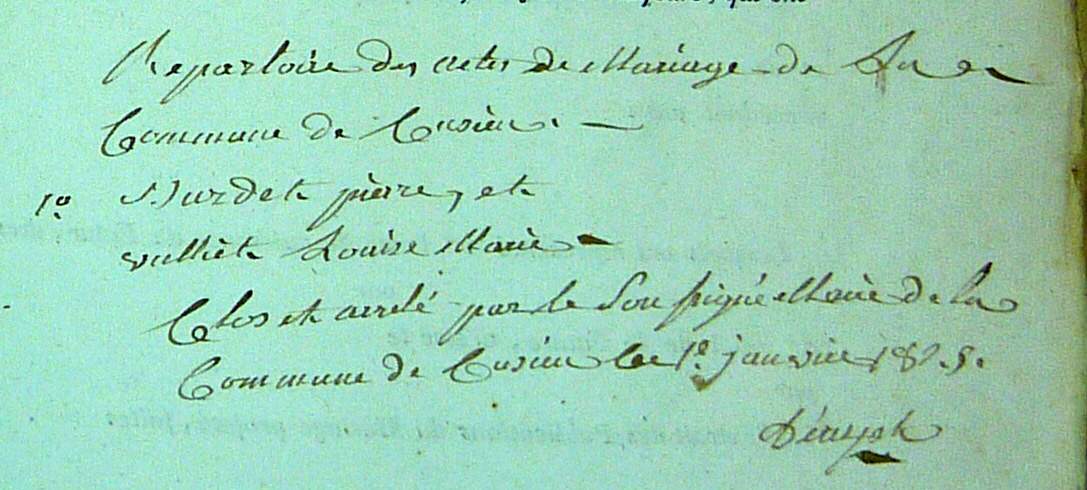 Repertoire des actes de Mariage de La
Commune de Cusieu. —
1º Burdet pierre, et
vulliet Louise Marie —
Clos et arrêté par le Soussigné Maire de la
Commune de Cusieu le 1er janvier 1825.